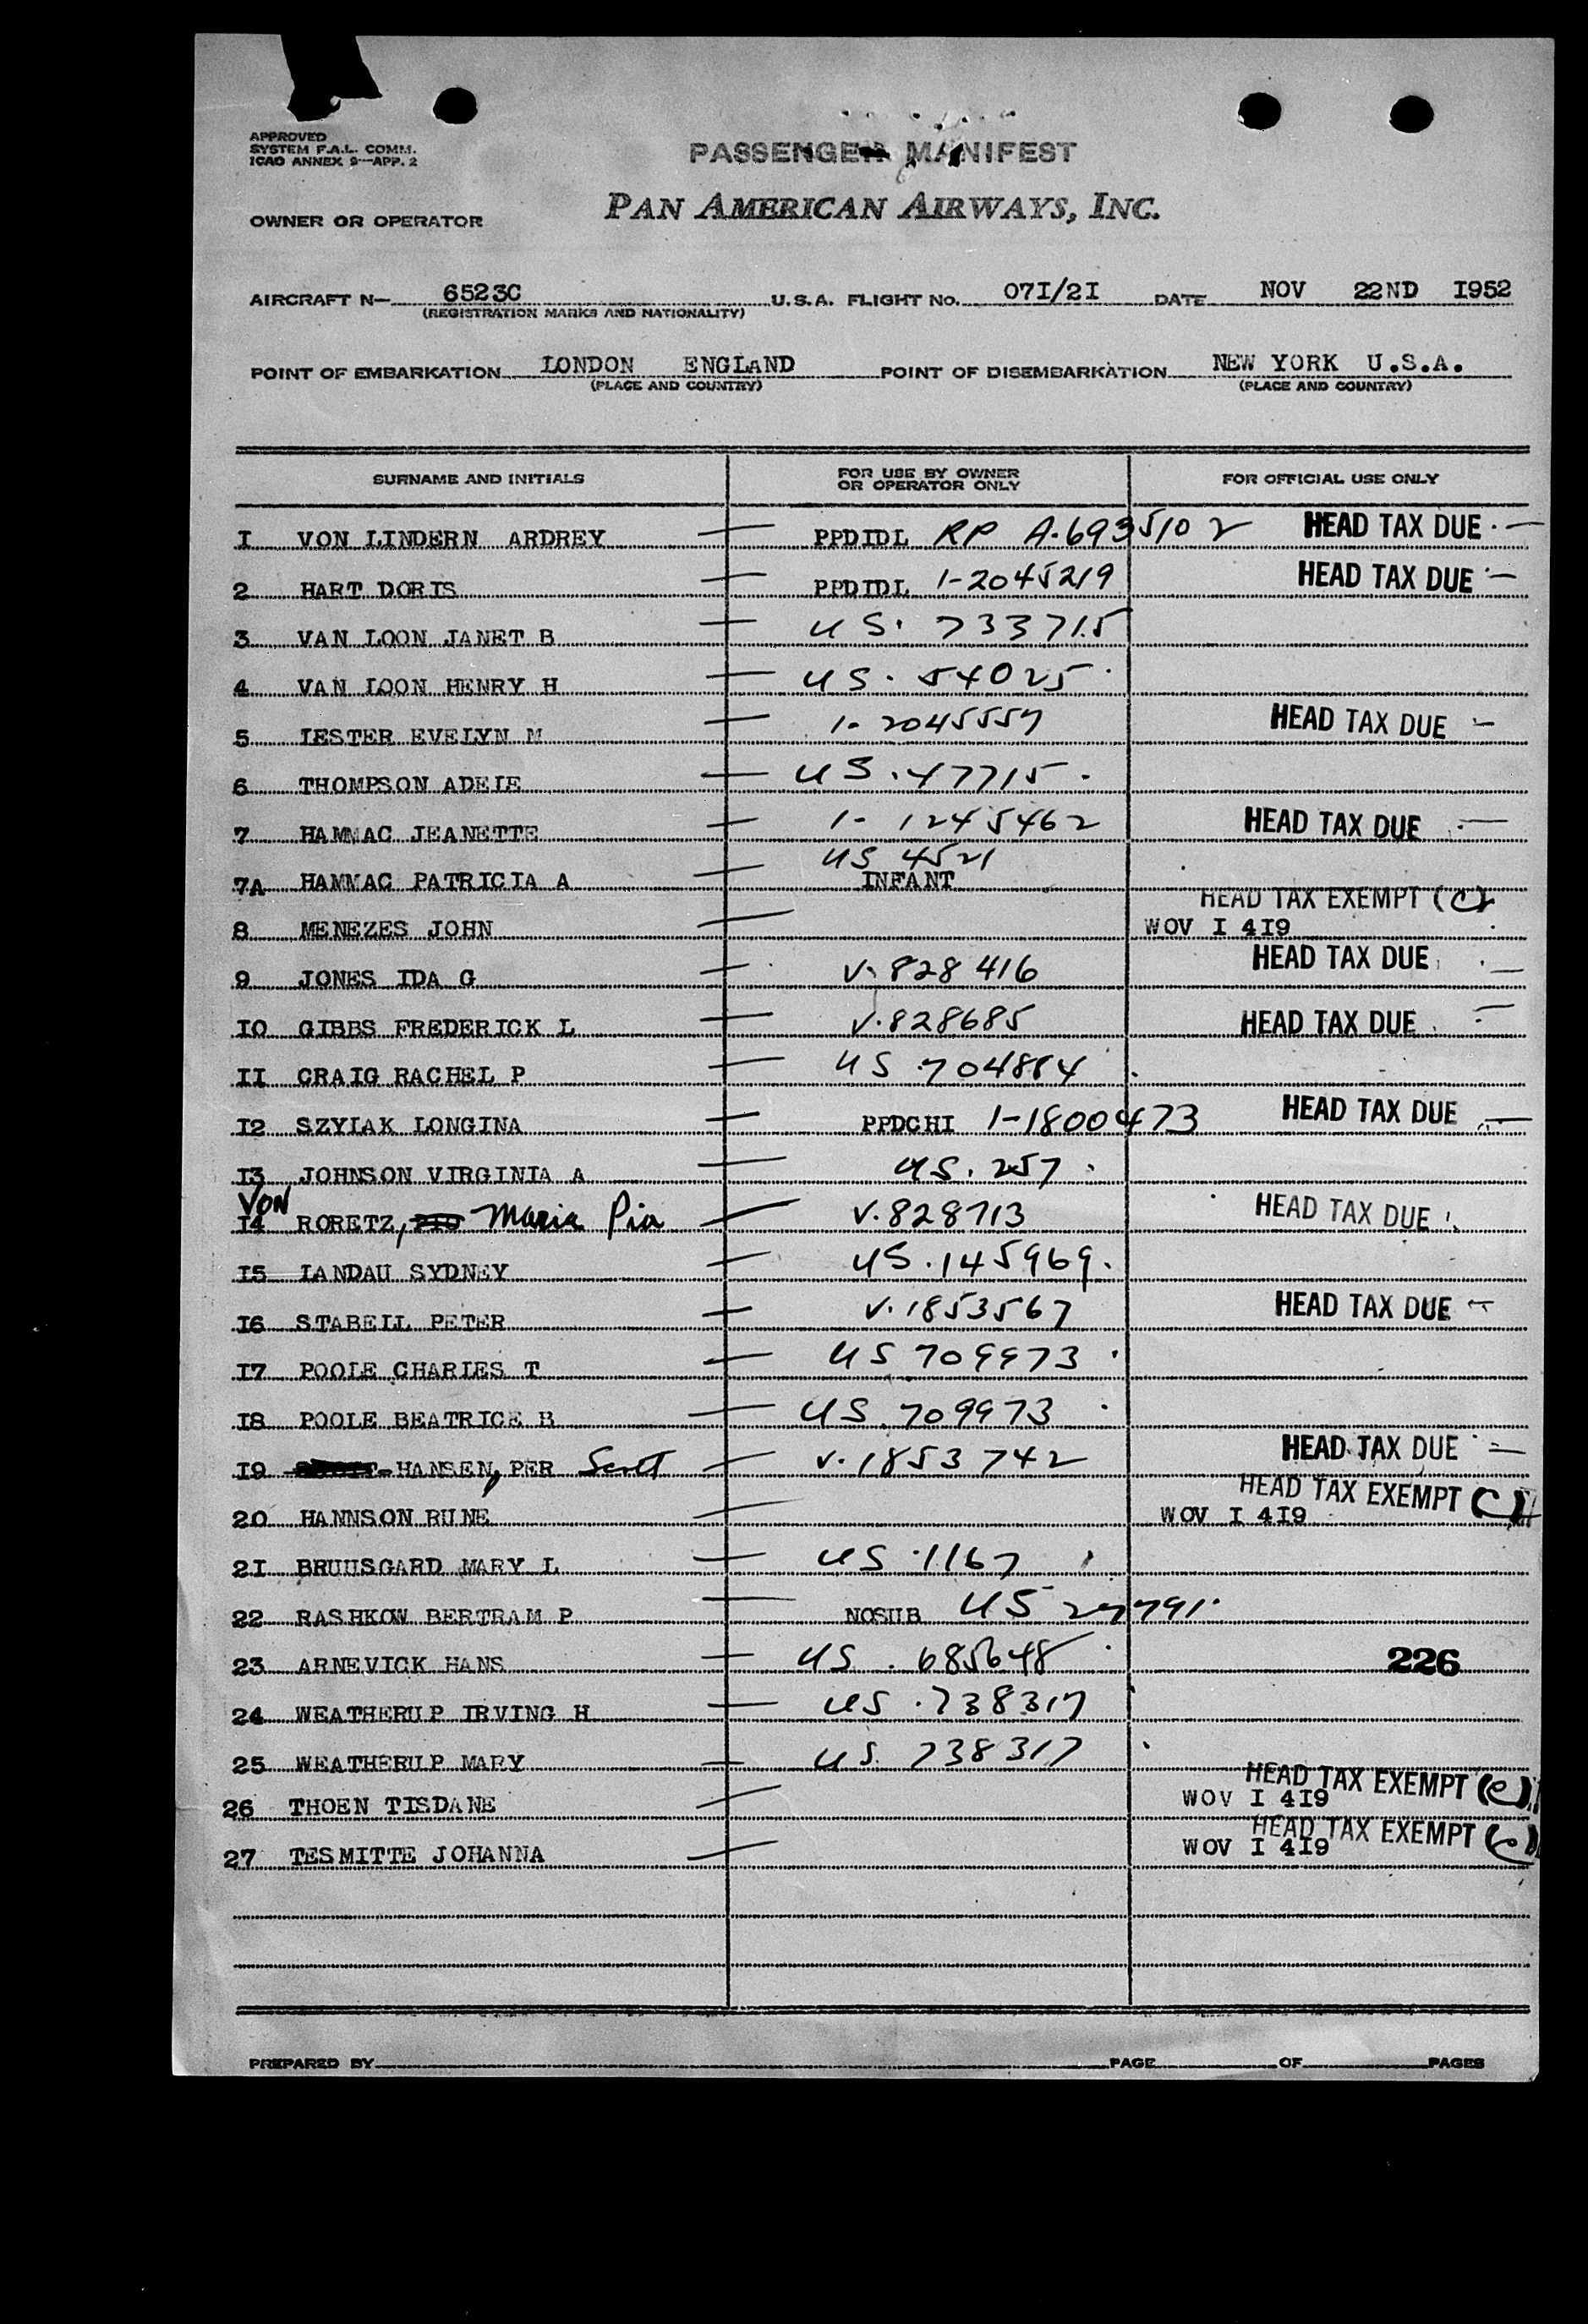 APPROVED
SYSTEM F.A.L. COMM.
ICAO ANNEX 9—APP. 2
PASSENGER MANIFEST
OWNER OR OPERATOR PAN AMERICAN AIRWAYS, INC.
AIRCRAFT N— 6523C U.S.A. FLIGHT NO. 07I/2I DATE NOV 22ND I952
(REGISTRATION MARKS AND NATIONALITY)
POINT OF EMBARKATION LONDON ENGLAND POINT OF DISEMBARKATION NEW YORK U.S.A.
(PLACE AND COUNTRY) (PLACE AND COUNTRY)
SURNAME AND INITIALS FOR USE BY OWNER OR OPERATOR ONLY FOR OFFICIAL USE ONLY
I VON LINDERN ARDREY — PPDIDL RP A-6935102 HEAD TAX DUE
2 HART DORIS — PPDIDL 1-2045219 HEAD TAX DUE
3 VAN LOON JANET B — US. 733715
4 VAN LOON HENRY H — US. 54025
5 LESTER EVELYN M — 1-2045557 HEAD TAX DUE
6 THOMPSON ADELE — US.47715.
7 HAMMAC JEANETTE — 1-1245462 HEAD TAX DUE
US 4521
7A HAMMAC PATRICIA A — INFANT
HEAD TAX EXEMPT (C)
8 MENEZES JOHN — WOV I 4I9
9 JONES IDA G — V.828416 HEAD TAX DUE
IO GIBBS FREDERICK L — V.828685 HEAD TAX DUE
II CRAIG RACHEL P — US.704884
I2 SZYLAK LONGINA — PPDCHI 1-1800473 HEAD TAX DUE
I3 JOHNSON VIRGINIA A — US.257.
VON
I4 RORETZ, Maria Pia — V.828713 HEAD TAX DUE
I5 LANDAU SYDNEY — US.145969.
I6 STABELL PETER — V.1853567 HEAD TAX DUE
I7 POOLE CHARLES T — US 709973
I8 POOLE BEATRICE B — US.709973
I9 HANSEN, PER Scott — V.1853742 HEAD TAX DUE
HEAD TAX EXEMPT (C)
20 HANNSON RUNE — WOV I 4I9
2I BRUUSGARD MARY L — US.1167
22 RASHKOW BERTRAM P — NOSUB US 27791.
23 ARNEVICK HANS — US. 685648 226
24 WEATHERUP IRVING H — US.738317
25 WEATHERUP MARY — US. 738317
HEAD TAX EXEMPT (C)
26 THOEN TISDANE — WOV I 4I9
HEAD TAX EXEMPT (C)
27 TESMITTE JOHANNA — WOV I 4I9
PREPARED BY PAGE OF PAGES